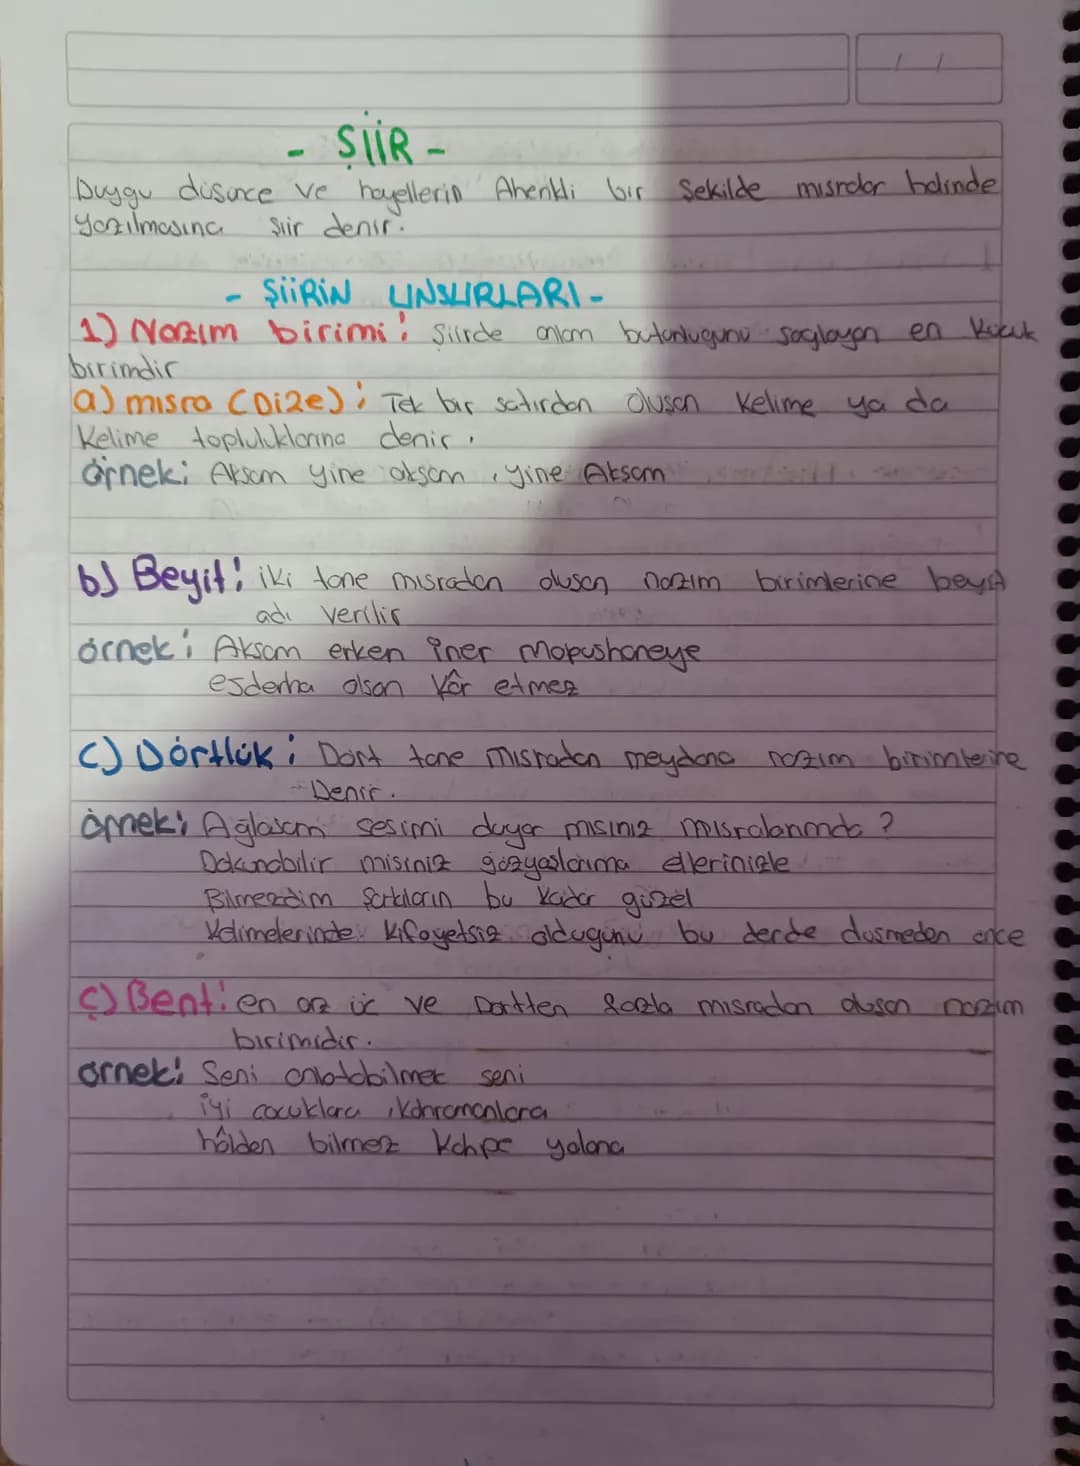 - ŞİİR -
Duygu düsünce ve hayellerin Ahenkli bir Sekilde mısralar halinde
yazılmasına şiir denir.
- ŞİİRİN UNSURLARI -
1) Nazım birimi: Şiirde anlam bütünlügünü saglayan en Kücük
birimdir
a) mısra (Dize): Tek bir satırdan olusan Kelime ya da
Kelime topluluklarına denir.
örnek: Aksam yine aksam, yine Aksam
b) Beyit: iki tane mısradan olusan nazım birimlerine beyit
adı verilir
örnek: Aksam erken iner mapushaneye
ejderha olsan Kâr etmez
c) Dörtlük: Dört tane mısradan meydana nazım birimlerine
Denir.
örnek: Ağlasam sesimi duyar mısınız mısralarımda?
Dokunabilir misiniz gözyaslarıma ellerinizle
Bilmezdim Şarkıların bu kadar güzel
Kelimelerinde Kifayetsiz oldugunu bu derde dusmeden önce
ç) Bent: en az üç ve Dörtten fazla mısradan olusan nazım
birimidir.
örnek: Seni anlatabilmek seni
iyi cocuklara, Kahramanlara
hâlden bilmez Kahpe yalana